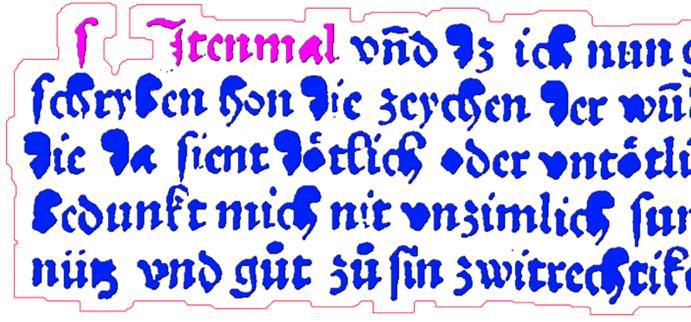 ſ Jtenmal vñd dz ich nun
ſchryben hon die zeychen der wü
die da ſient doͤtlich oder vntoͤtli
bedunkt mich nit vnzimlich ſun
nütz vnd guͦt zuͦ ſin zwitrechtik